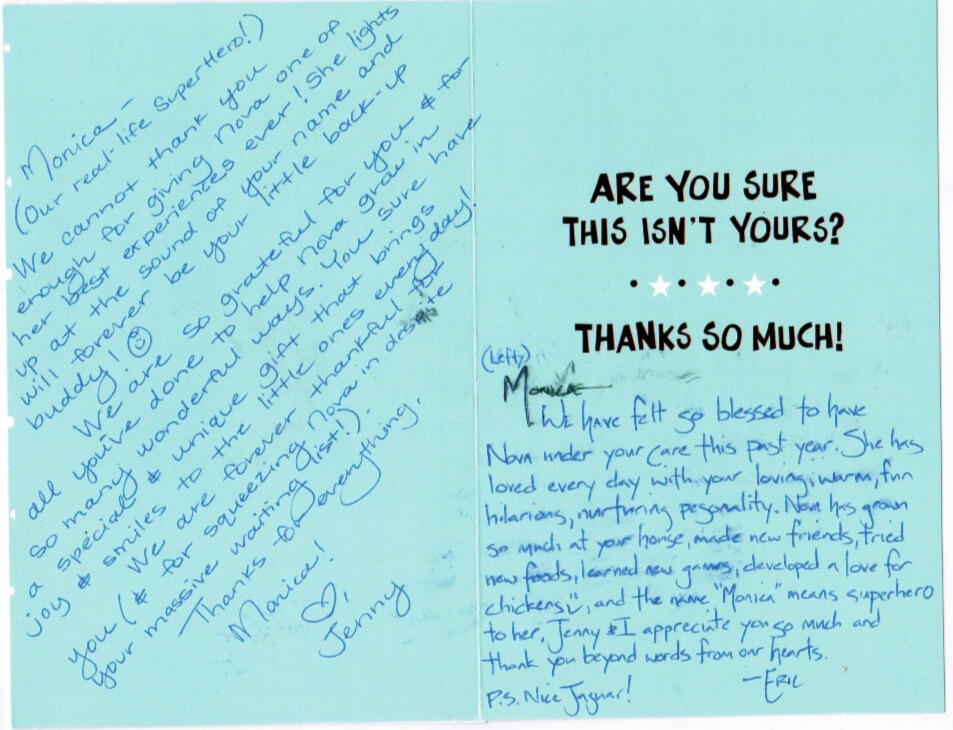 Monica –
(Our real-life SuperHero!)
We cannot thank you
enough for giving Nova one of
her best experiences ever! She lights
up at the sound of your name and
will forever be your little back-up
buddy!
We are so grateful for you & for
all you've done to help Nova grow in
so many wonderful ways. You sure have
a special & unique gift that brings
joy & smiles to the little ones every day!
We are forever thankful for
you (& for squeezing Nova in despite
your massive waiting list!).
Thanks for everything,
Monica!
♡,
Jenny
ARE YOU SURE
THIS ISN'T YOURS?
THANKS SO MUCH!
(Left)
Monica
We have felt so blessed to have
Nova under your care this past year. She has
loved every day with your loving, warm, fun
hilarious, nurturing pesonality. Nova has grown
so much at your house, made new friends, tried
new foods, learned new games, developed a love for
chickens, and the name "Monica" means superhero
to her. Jenny & I appreciate you so much and
thank you beyond words from our hearts.
–Eric
P.S. Nice Jaguar!